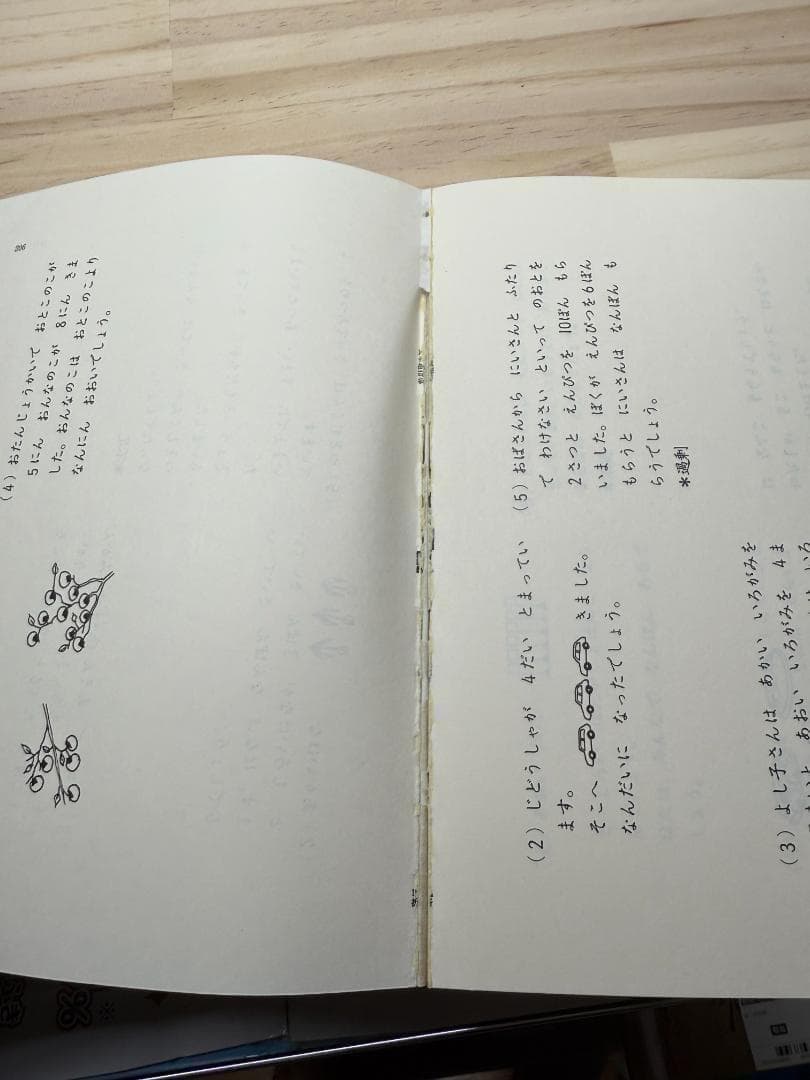 206
(4) おたんじょうかいで おとこのこが
5にん おんなのこが 8にん きま
した。おんなのこは おとこのこより
なんにん おおいでしょう。
(2) じどうしゃが 4だい とまってい
ます。
そこへ きました。
なんだいに なったでしょう。
(5) おばさんから にいさんと ふたり
で わけなさい といって のおとを
2さつと えんぴつを 10ぽん もら
いました。ぼくが えんぴつを6ぽん
もらうと にいさんは なんぼん も
らうでしょう。
*過剰
(3) よし子さんは あかい いろがみを
あおい いろがみを 4ま